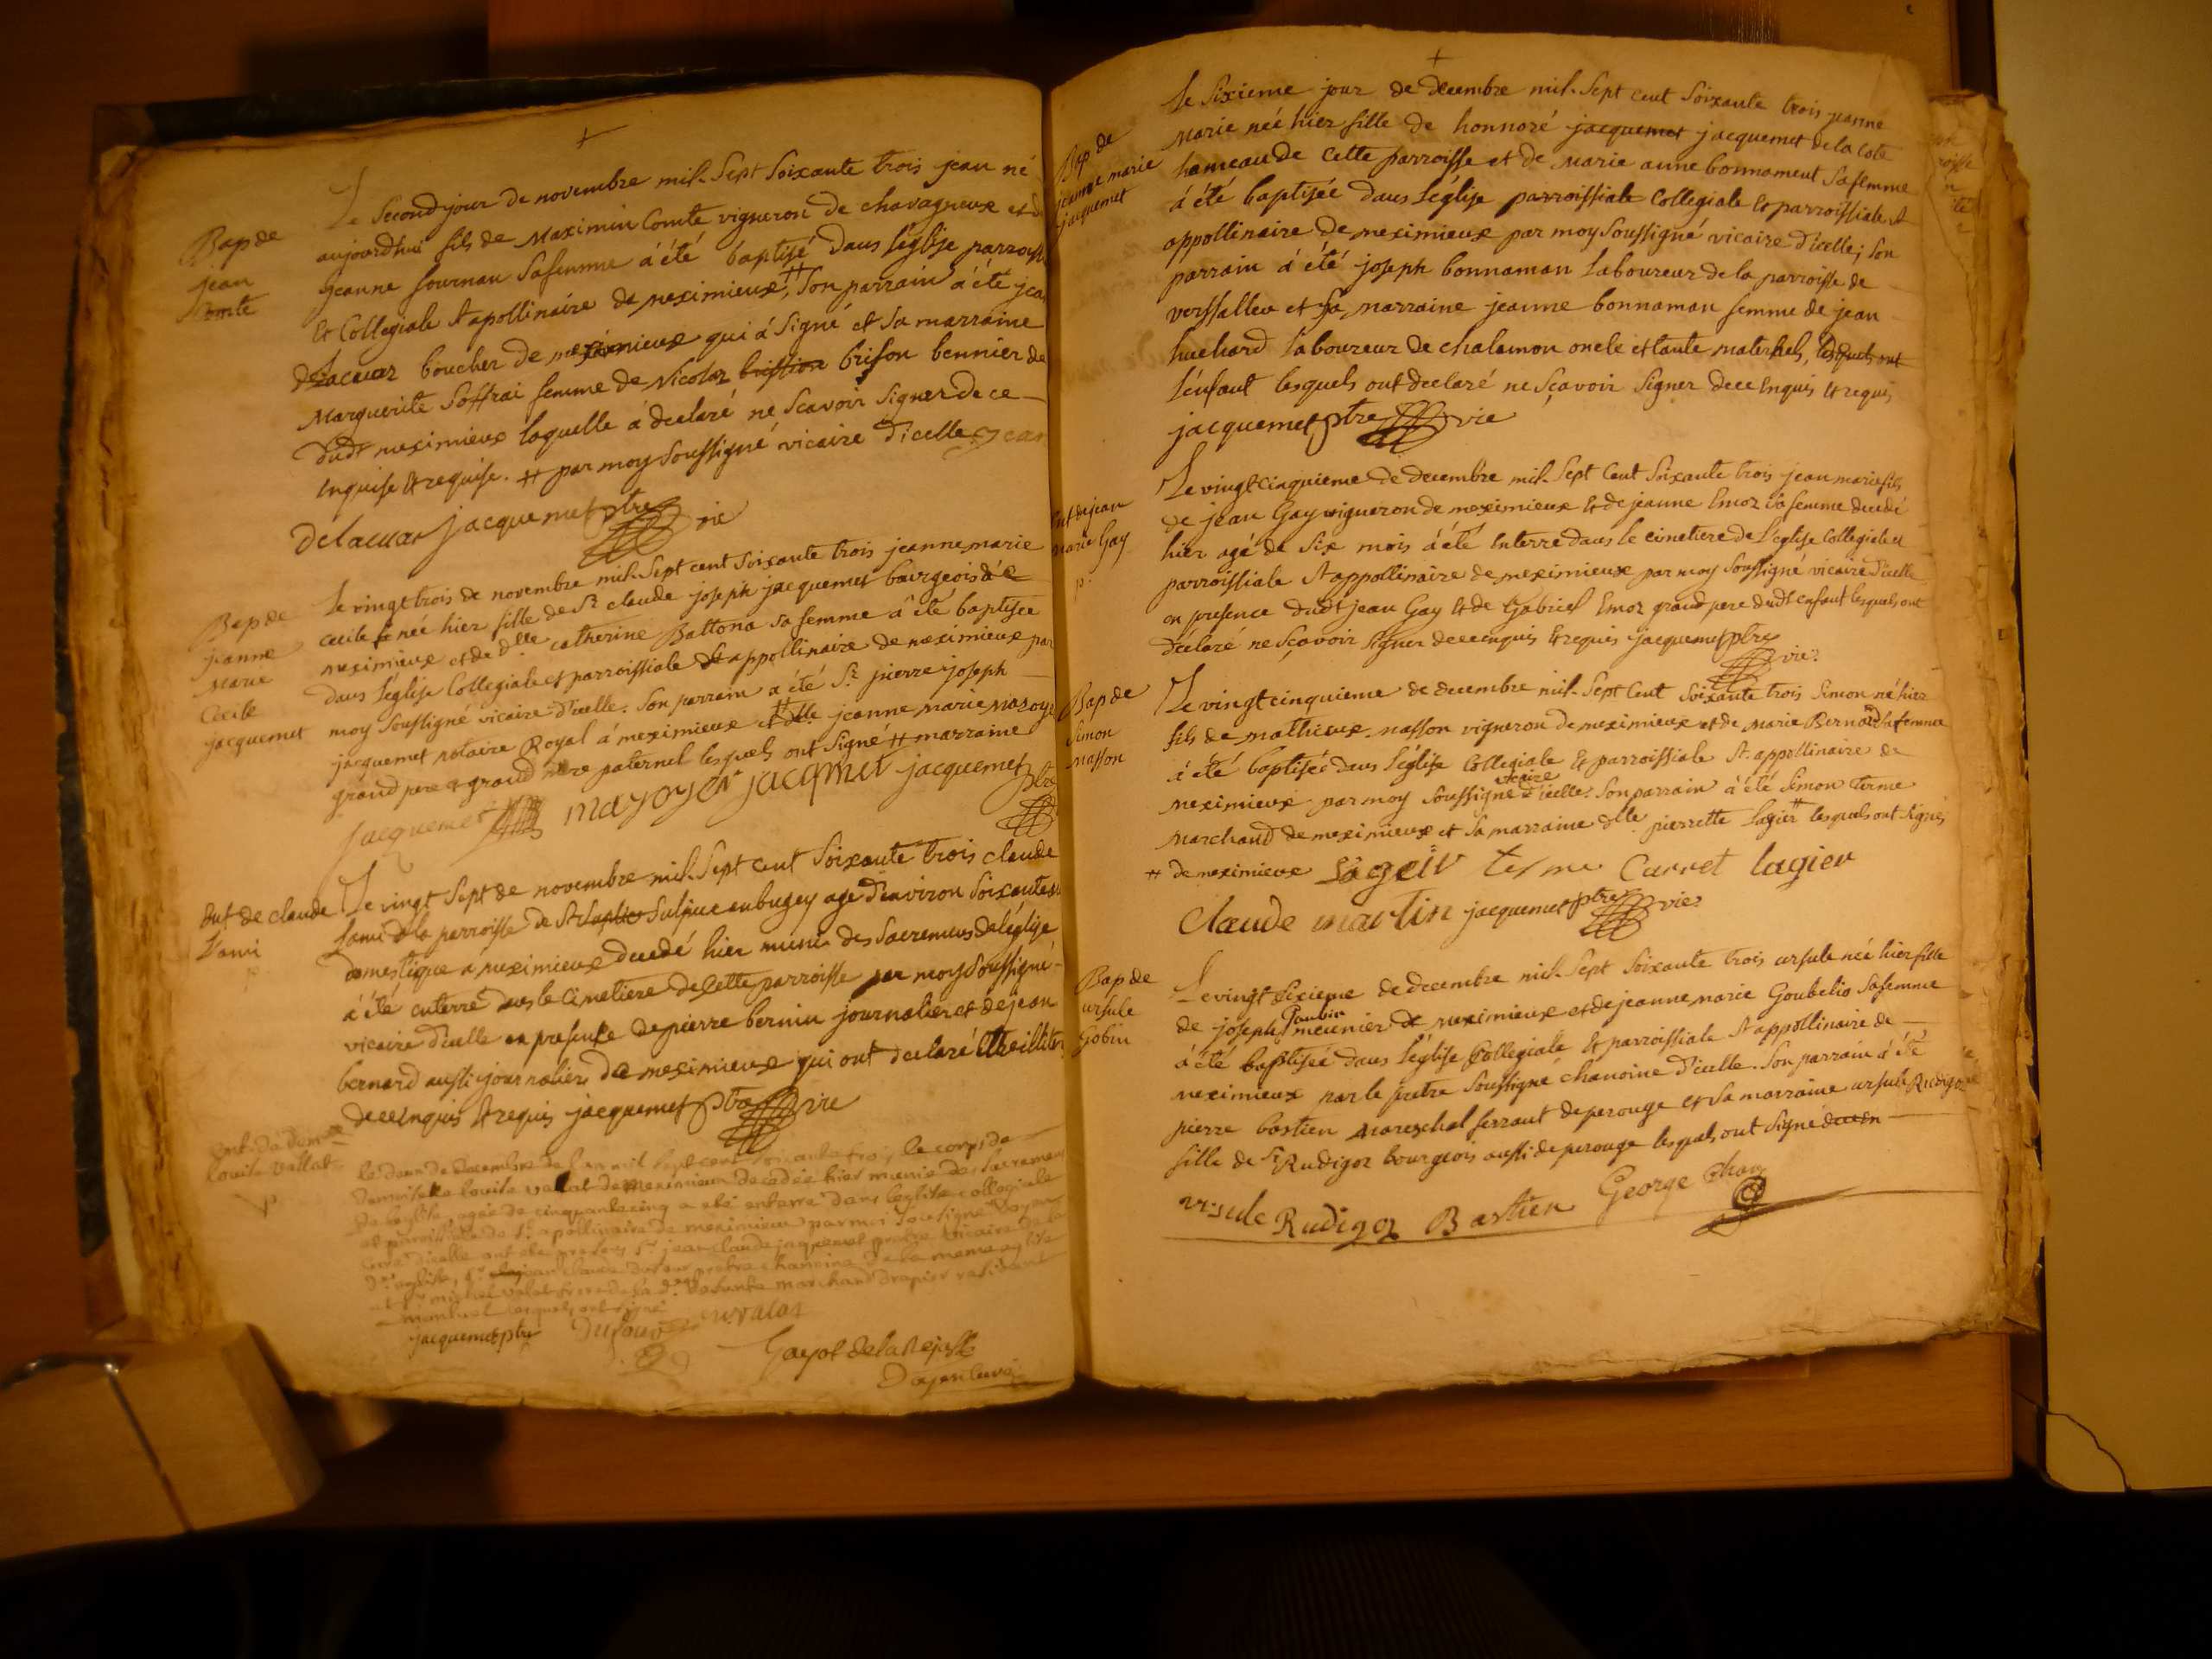 Bap de
jean
Comte
Le Second jour de novembre mil-Sept Soixante trois jean né
aujourd'hui fils de Maximin Comte vigneron de chavagneux et d
jeanne fournan Sa femme a été baptisé dans l'église parroiss
Et Collegiale St apollinaire de meximieux, # Son parrain a été jea
delacuar boucher de meximieux qui a Signé et Sa marraine
Marguerite Soffrai femme de Nicolaz brison bennier de
dudt meximieux laquelle a declaré ne Scavoir Signer de ce
Enquise et requise. # par moy Soussigné vicaire d'icelle
Delacuar jacquemet ptre vic
Bap de
jeanne
Marie
Cecile
jacquemet
Le vingt trois de novembre mil-Sept cent Soixante trois jeanne marie
Cecile née hier fille de Sr claude joseph jacquemet bourgeois de
meximieux et de dlle catherine Battona sa femme a été baptisée
dans l'église Collegiale et parroissiale St appollinaire de meximieux par
moy Soussigné vicaire d'icelle. Son parrain a été Sr pierre joseph
jacquemet notaire Royal à meximieux et # dlle jeanne marie
grand pere et grand mere paternel lesquels ont Signé # marraine
jacquemet mayoyer jacqmet jacquemet ptre
Ent de claude
Lami
Le vingt Sept de novembre mil-Sept cent Soixante trois claude
Lami de la parroisse de St Sulpice en bugey agé d'environ Soixante
domestique a meximieux decedé hier muni des Sacremens de l'église
a été enterré dans le Cimetiere de Cette parroisse par moy Soussigné
vicaire d'icelle en presence de pierre bernin journalier et de jean
bernard aussi journalier de meximieux qui ont declaré etre illiter
de ce Enquis et requis jacquemet ptre vic
Ent. de demlle
Louise Vallat
le deux de decembre de l'an mil sept cent soixante trois le corps de
demoiselle louise valat de meximieux decedée hier munie des sacremens
de l'eglise, agée de cinquante cinq a eté enterré dans l'eglise collegiale
et parroissiale de St apollinaire de meximieux par moi soussigné doyen
curé d'icelle ont eté presens Sr jean claude jacquemet pretre vicaire de la
de eglise, Sr jean claude dufour pretre chanoine de la meme eglise
et Sr michel valat frere de la de defunte marchand drapier residant
lesquels ont signé
jacquemet ptre dufour valat
Gayot de la
Doyen curé
Bap de
jeanne marie
jacquemet
Le Sixieme jour de decembre mil-Sept cent Soixante trois jeanne
Marie née hier fille de honnoré jacquemet jacquemet de la Cote
hameau de Cette parroisse et de Marie anne bonnament Sa femme
a été baptisée dans L'église parroissiale Collegiale et parroissiale St
appollinaire de meximieux par moy Soussigné vicaire d'icelle; Son
parrain a été joseph bonnaman Laboureur de la parroisse de
verssalleu et Sa marraine jeanne bonnaman femme de jean
huchard Laboureur de chalamon oncle et tante maternels, lesquels ont
L'enfant lesquels ont declaré ne Sçavoir Signer de ce Enquis et requis
jacquemet ptre vic
Ent de jean
Marie Gay
Le vingt cinquieme de decembre mil-Sept Cent Soixante trois jean marie fils
de jean Gay vigneron de meximieux Et de jeanne Emoz Sa femme decedé
hier agé de Six mois a été Enterré dans le cimetiere de L'eglise Collegiale et
parroissiale St appollinaire de meximieux par moy Soussigné vicaire d'icelle
en presence dudt jean Gay Et de Gabriel Emoz grand pere dudt enfant lesquels ont
déclaré ne Sçavoir Signer de ce enquis Et requis jacquemet ptre
vic.
Bap de
Simon
Masson
Le vingt cinquieme de decembre mil-Sept Cent Soixante trois Simon né hier
fils de mathieux masson vigneron de meximieux et de Marie Bernard Sa femme
a été baptisée dans L'église Collegiale Et parroissiale St appollinaire de
meximieux par moy Soussigné vicaire d'icelle. Son parrain a été Simon terme
Marchand de meximieux et Sa marraine dlle pierrette Lagier # lesquels ont Signé,
# de meximieux Lageir terme Carret lagier
Claude martin jacquemet ptre vic
Bap de
ursule
Gobin
Le vingt Sixieme de decembre mil-Sept Soixante trois ursule née hier fille
de joseph Goubin meunier de meximieux et de jeanne marie Goubelio Sa femme
a été baptisée dans L'église Collegiale Et parroissiale St appollinaire de
meximieux par le pretre Soussigné chanoine d'icelle. Son parrain a été
pierre bastien Mareschal ferrant de perouge et Sa marraine ursule Rudigoz
fille de Sr Rudigoz bourgeois aussi de perouge lesquels ont Signé de ce en
ursule Rudigoz Bastien George chan